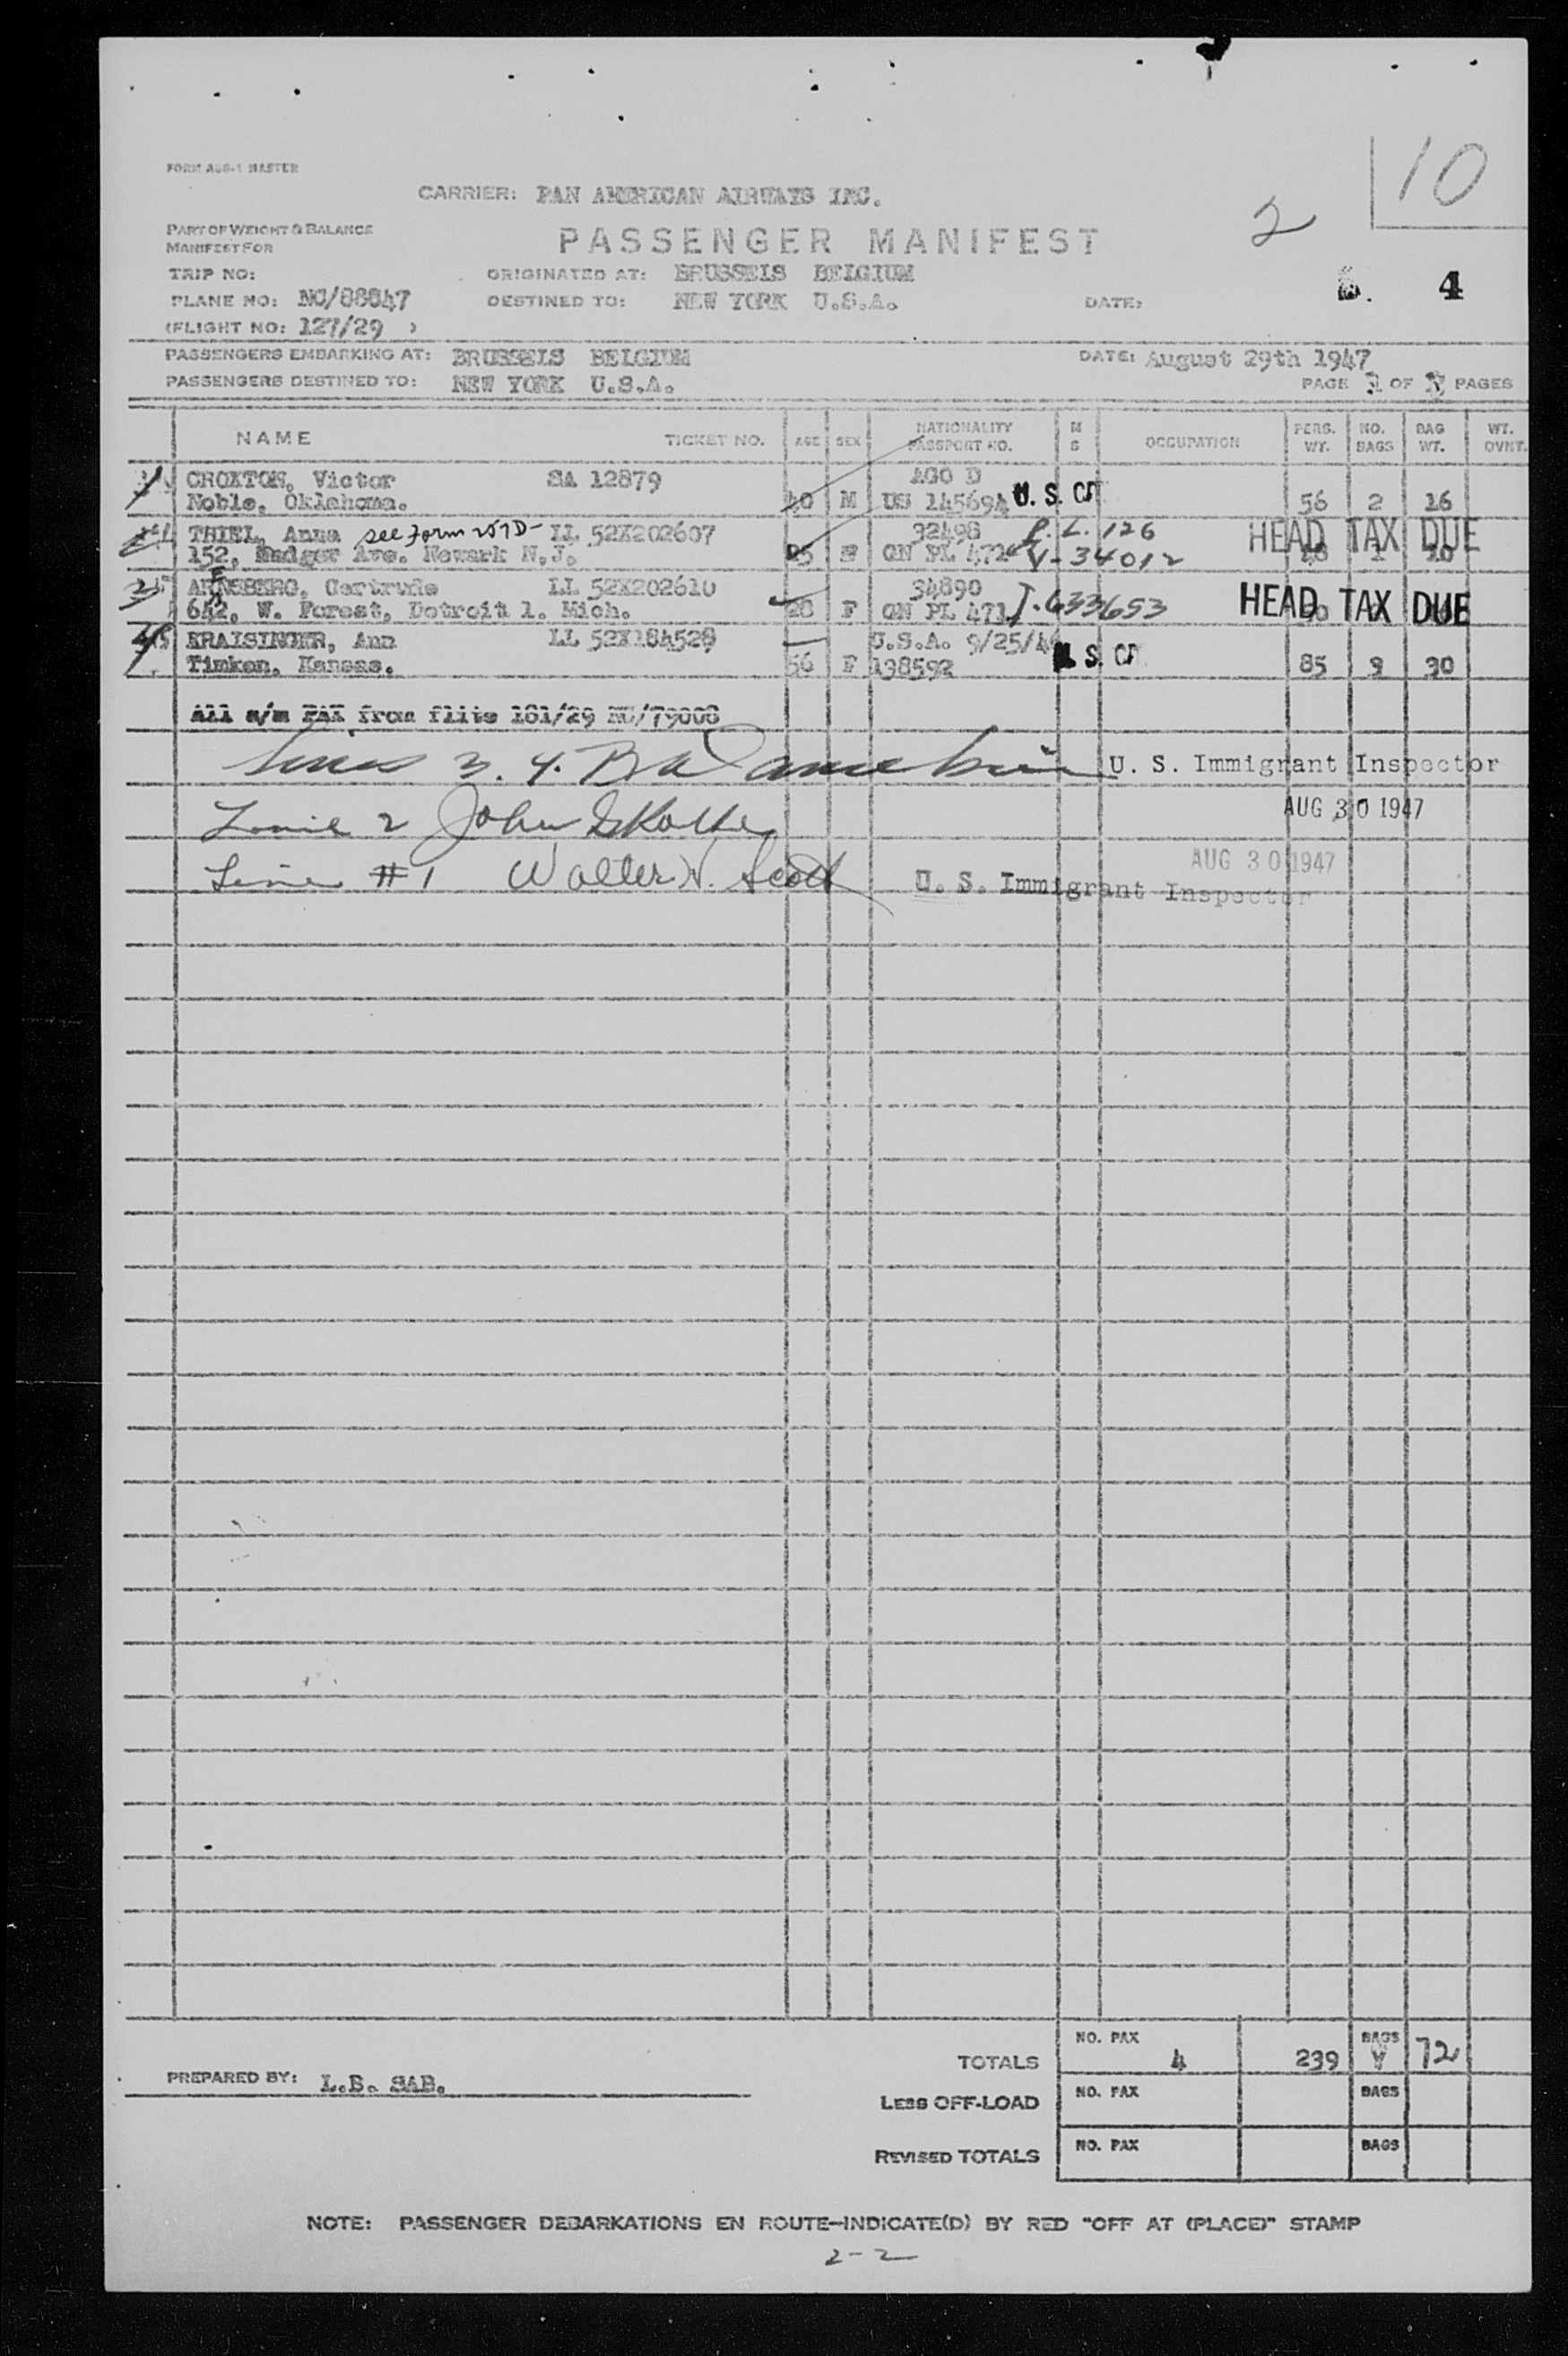 FORM AUG-1 MASTER
10
CARRIER: PAN AMERICAN AIRWAYS INC.
2
PART OF WEIGHT & BALANCE
MANIFEST FOR
PASSENGER MANIFEST
TRIP NO: ORIGINATED AT: BRUSSELS BELGIUM
PLANE NO: NC/88847 DESTINED TO: NEW YORK U.S.A. DATE: 4
(FLIGHT NO: 127/29 )
PASSENGERS EMBARKING AT: BRUSSELS BELGIUM DATE: August 29th 1947
PASSENGERS DESTINED TO: NEW YORK U.S.A. PAGE OF PAGES
NAME TICKET NO. AGE SEX NATIONALITY PASSPORT NO. M S OCCUPATION PERS. WT. NO. BAGS BAG WT. WT. OVNT.
1 CROXTON, Victor SA 12879 AGO D
Noble, Oklahoma. 40 M US 145694 U. S. CIT 56 2 16
THIEL, Anna see form 257D- LL 52X202607 32498 P. L. 126 HEAD TAX DUE
152, Badger Ave. Newark N.J. QN PL 472 V-34012
ARNSBERG, Gertrude LL 52X202610 34890
642, W. Forest, Detroit 1. Mich. 28 F QN PL 473 I-633653 HEAD TAX DUE
KRAISINGER, Ann LL 52X184528 U.S.A. 9/25/46
Timken, Kansas. 56 F 138592 U. S. CIT 85 3 30
All n/m PAX from flite 181/29 NC/79008
Lines 3. 4. U. S. Immigrant Inspector
AUG 30 1947
Line 2 John
AUG 30 1947
Line #1 Walter N. Scott U. S. Immigrant Inspector
TOTALS NO. PAX 4 239 BAGS 72
PREPARED BY: L.B. SAB.
LESS OFF-LOAD NO. PAX BAGS
REVISED TOTALS NO. PAX BAGS
NOTE: PASSENGER DEBARKATIONS EN ROUTE-INDICATE(D) BY RED "OFF AT (PLACE)" STAMP
2-2